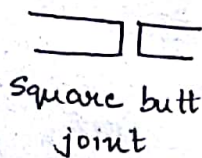 Square butt
joint